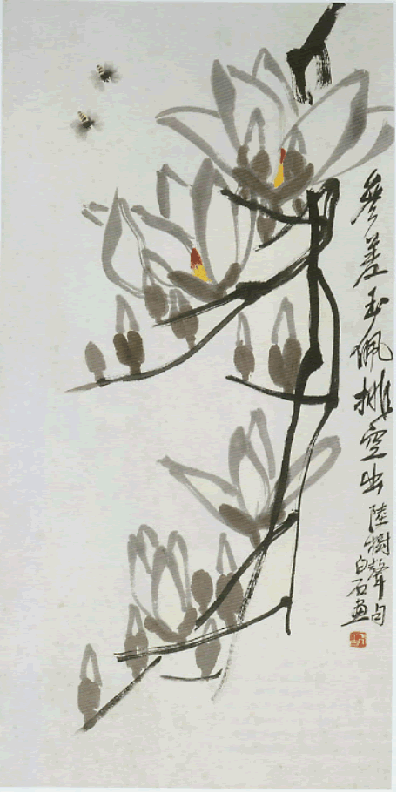 參差玉佩排空出陸樹聲句
白石畫